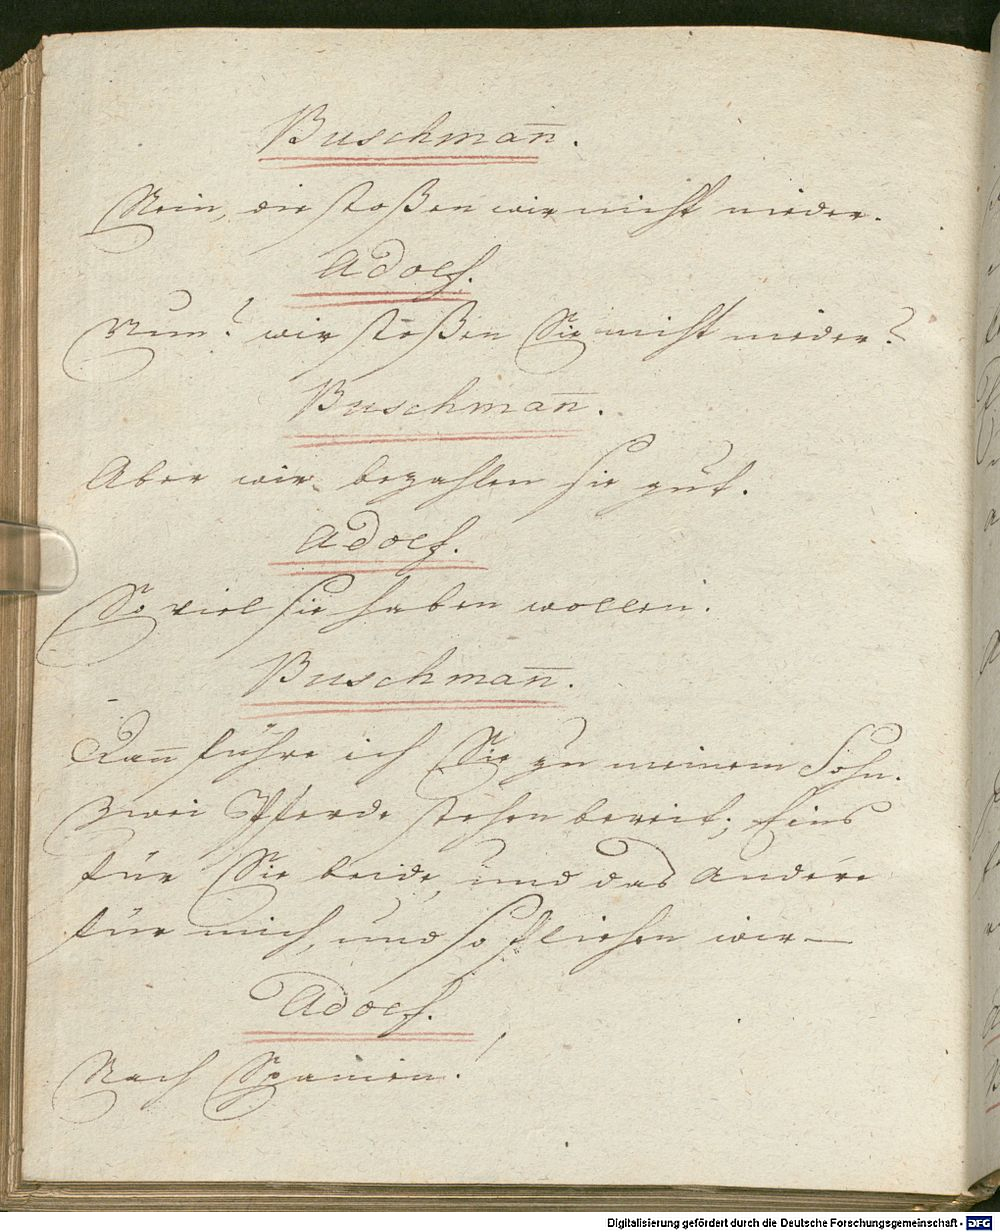 Buschman̄.
Nein, die stoßen wir nicht nieder.
Adolf.
Nun? wir stoßen Sie nicht nieder?
Buschman̄.
Aber wir bezahlen sie gut.
Adolf.
So viel sie haben wollen.
Buschman̄.
Dan̄ führe ich Sie zu meinem Sohn.
Zwei Pferde stehen bereit; Eins
für Sie beide, und das andere
für mich, und so fliehen wir —
Adolf.
Nach Spanien!
Digitalisierung gefördert durch die Deutsche Forschungsgemeinschaft - DFG